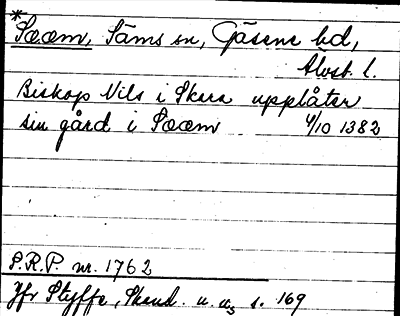 *Sææm, Säms sn, Gäsene hd,
Älvsb. l.
Biskop Nils i Skara upplåter
sin gård i Sææm 4/10 1382
S.R.P. nr. 1762
Jfr Styffe, Skand. u. us s. 169